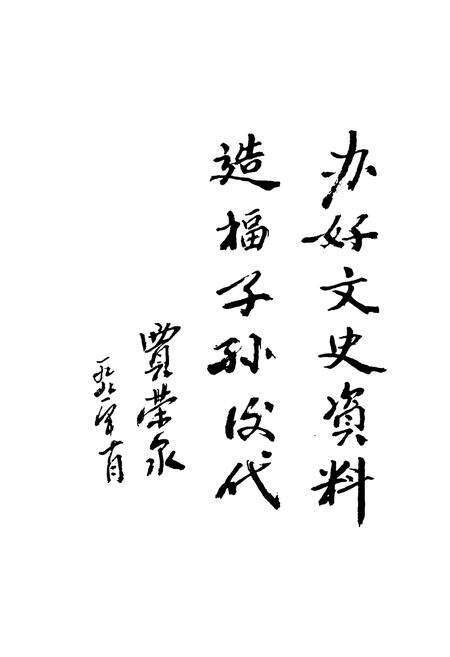 办好文史资料
造福子孙后代
贾荣泉